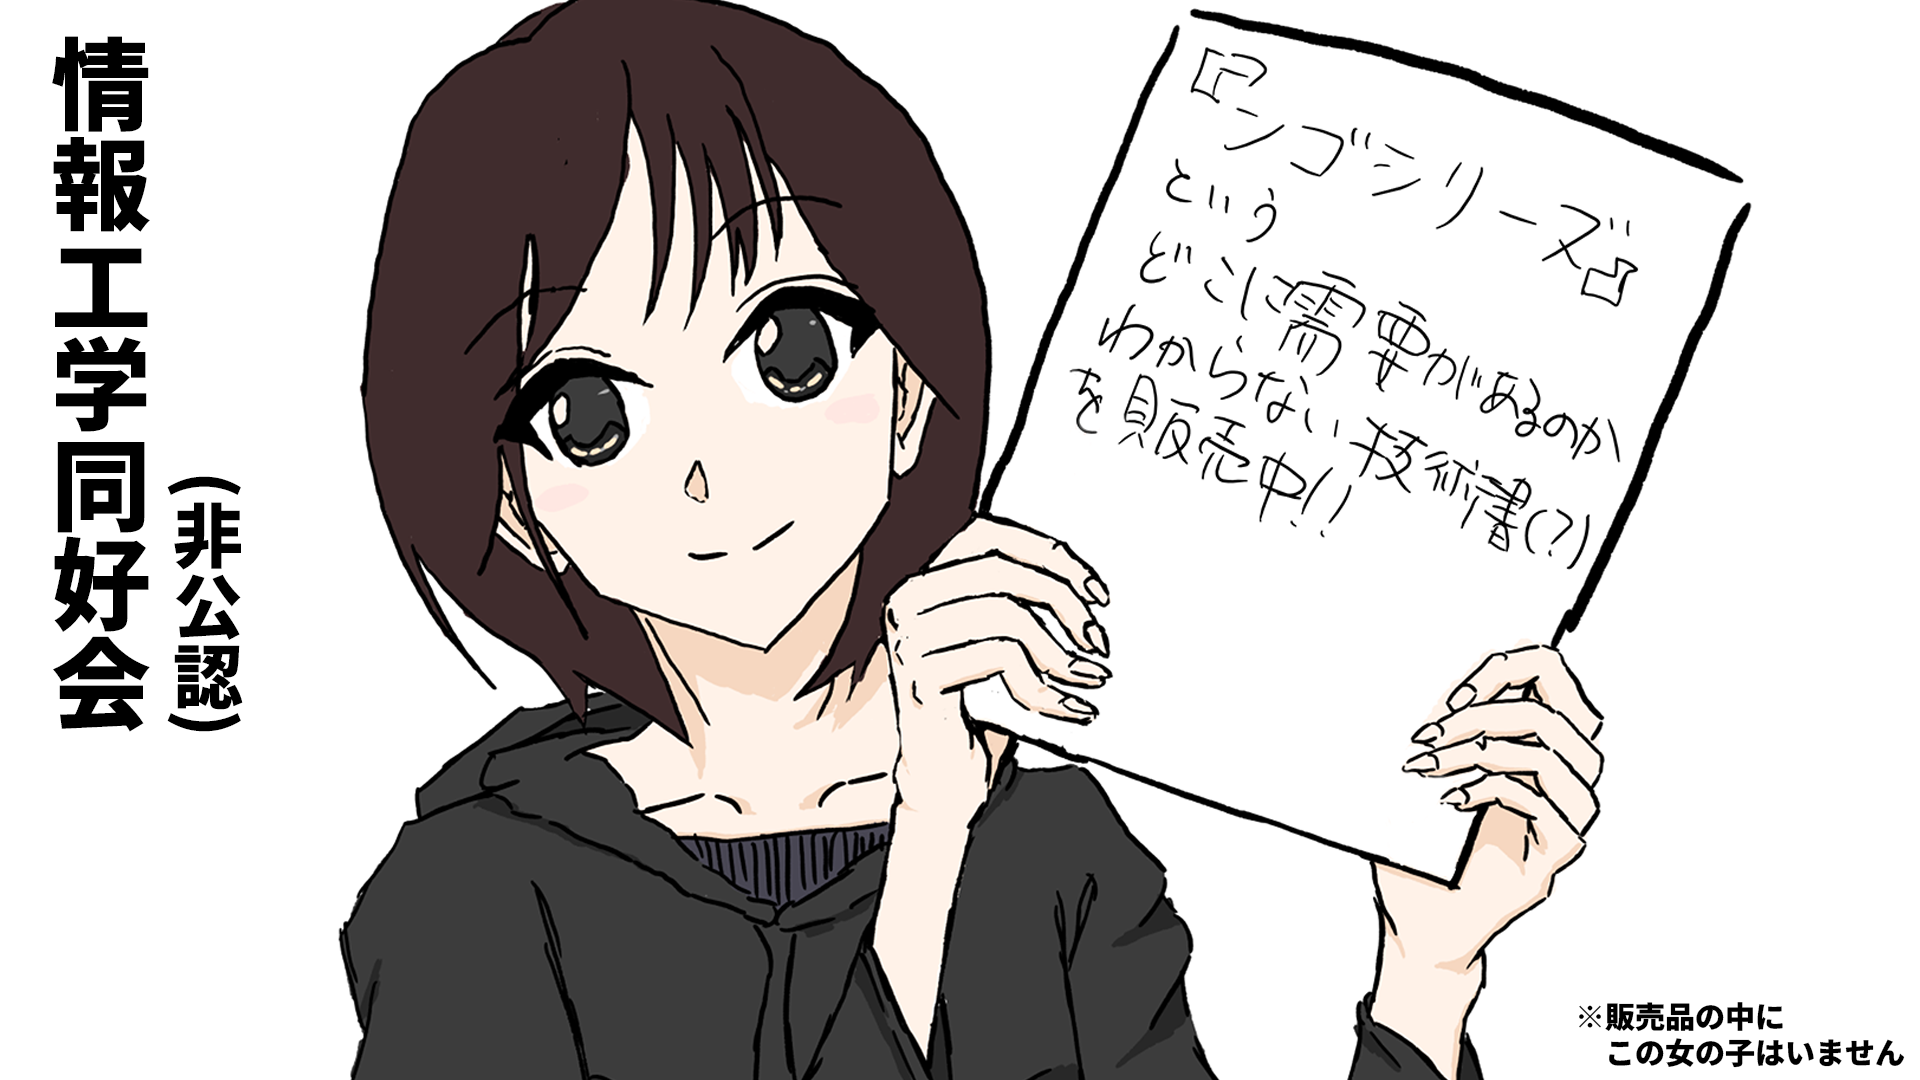 情報工学同好会
(非公認)
『ンゴシリーズ』
という
どこに需要があるのか
わからない技術書(?)
を販売中!!
※販売品の中に
この女の子はいません